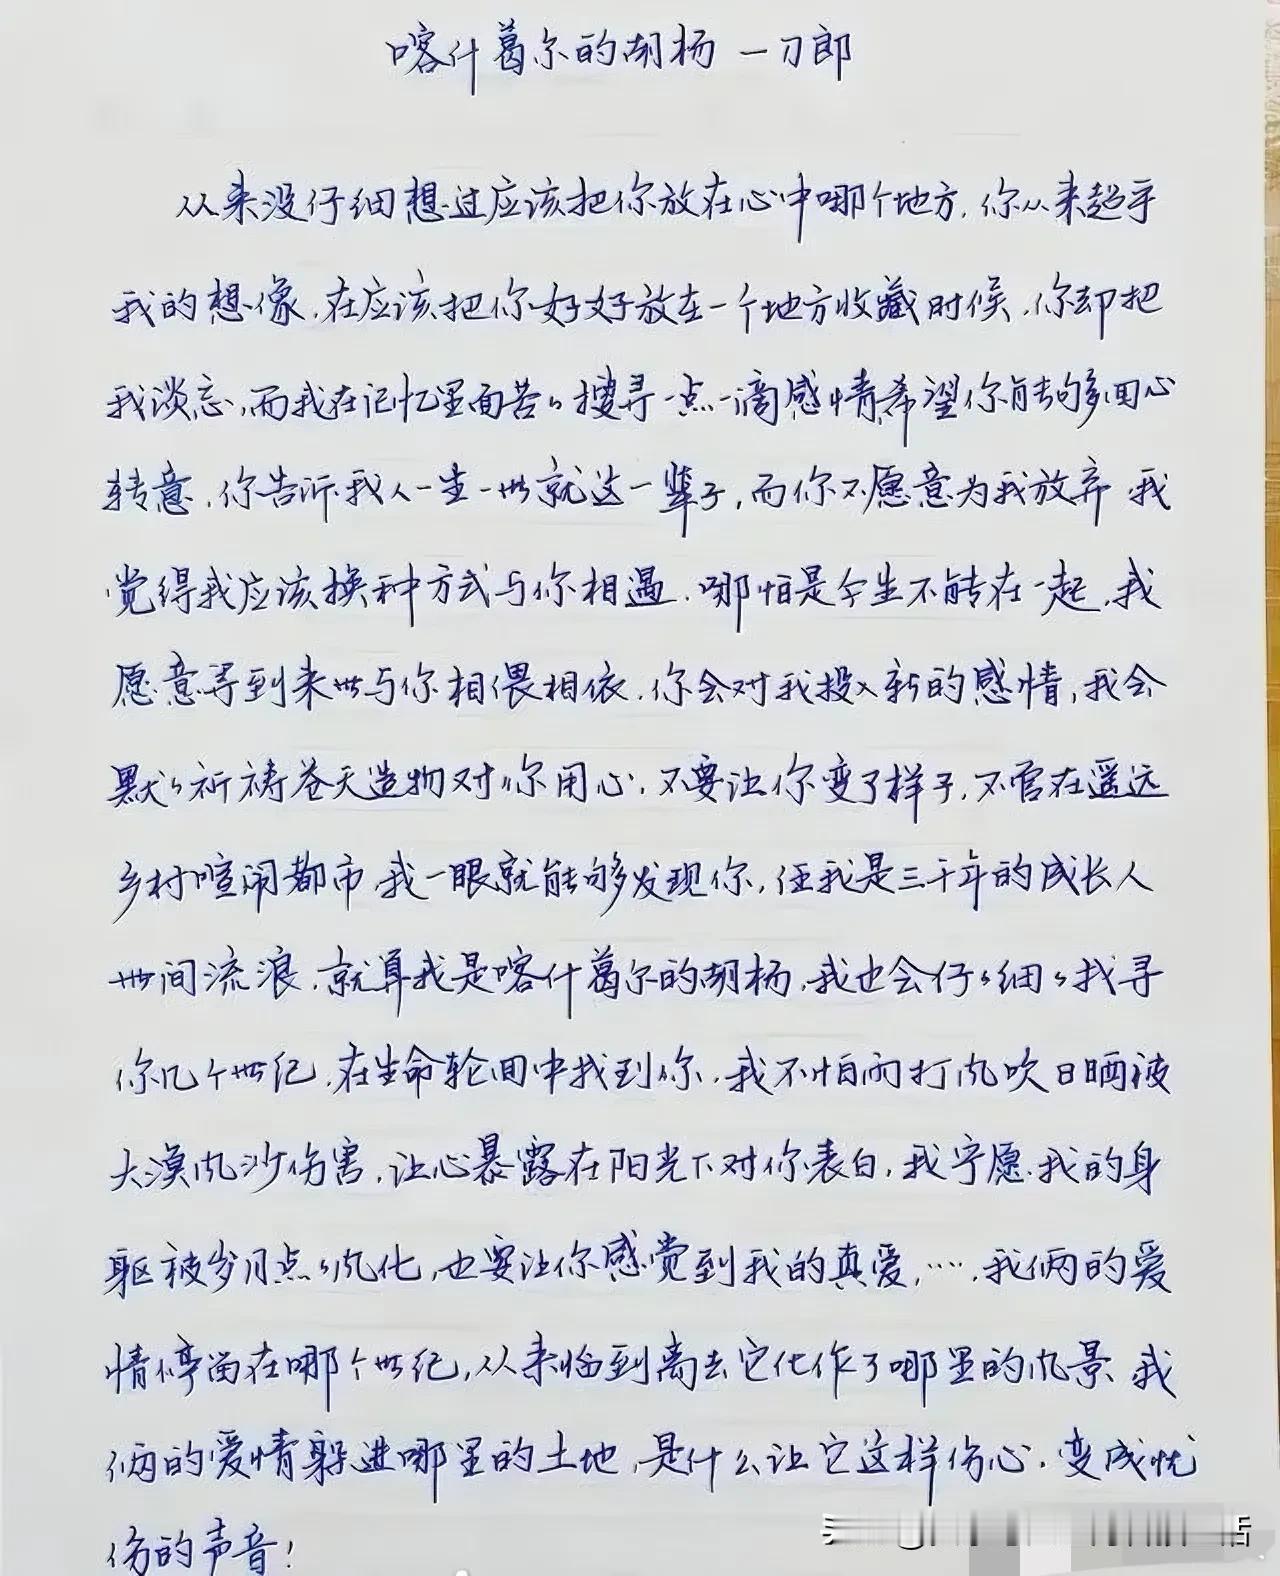 喀什葛尔的胡杨 一刀郎
从来没仔细想过应该把你放在心中哪个地方,你从来超乎
我的想像,在应该把你好好放在一个地方收藏时候,你却把
我淡忘,而我在记忆里面苦々搜寻一点一滴感情希望你能够回心
转意,你告诉我人一生一世就这一辈子,而你不愿意为我放弃,我
觉得我应该换种方式与你相遇,哪怕是今生不能在一起,我
愿意等到来世与你相偎相依,你会对我投入新的感情,我会
默々祈祷苍天造物对你用心,不要让你变了样子,不管在遥远
乡村喧闹都市,我一眼就能够发现你,任我是三千年的成长人
世间流浪,就算我是喀什葛尔的胡杨,我也会仔々细々找寻
你几个世纪,在生命轮回中找到你,我不怕雨打风吹日晒被
大漠风沙伤害,让心暴露在阳光下对你表白,我宁愿我的身
躯被岁月点々风化,也要让你感觉到我的真爱,……,我俩的爱
情停留在哪个世纪,从来临到离去它化作了哪里的风景,我
俩的爱情躲进哪里的土地,是什么让它这样伤心,变成忧
伤的声音!